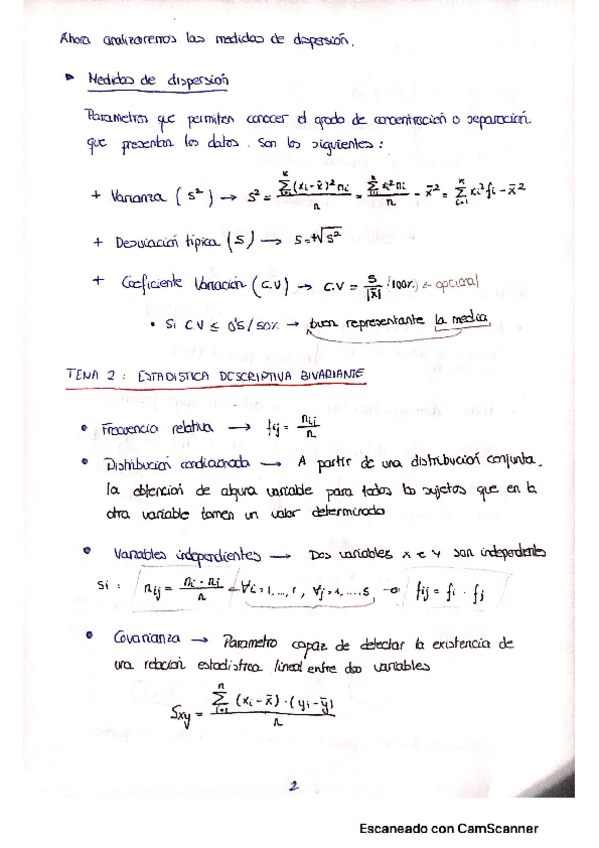 Ahora analizaremos las medidas de dispersión.
▸ Medidas de dispersión
Parametros que permiten conocer el grado de concentración o separación
que presentan los datos. Son los siguientes:
+ Varianza (s²) → s² = Σᵢ₌₁ᵏ (xᵢ-x̄)² nᵢ / n = Σᵢ₌₁ᵏ xᵢ² nᵢ / n - x̄² = Σᵢ₌₁ᵏ xᵢ² fᵢ - x̄²
+ Desviación típica (s) → s = +√s²
+ Coeficiente Variación (C.V) → C.V = s / |x̄| (100%) ← opcional
• Si CV ≤ 0'5/50% → buen representante la media
TEMA 2: ESTADISTICA DESCRIPTIVA BIVARIANTE
• Frecuencia relativa → fij = nij / n
• Distribución condicionada → A partir de una distribución conjunta,
la obtención de alguna variable para todos los sujetos que en la
otra variable tomen un valor determinado
• Variables independientes → Dos variables x e y son independients
si: nij = ni · nj / n → ∀i=1,...,r, ∀j=1,....s, → fij = fi · fj
• Covarianza → Parametro capaz de detectar la existencia de
una relación estadistica lineal entre dos variables
Sxy = Σᵢ₌₁ⁿ (xi-x̄)·(yi-ȳ) / n
2
Escaneado con CamScanner